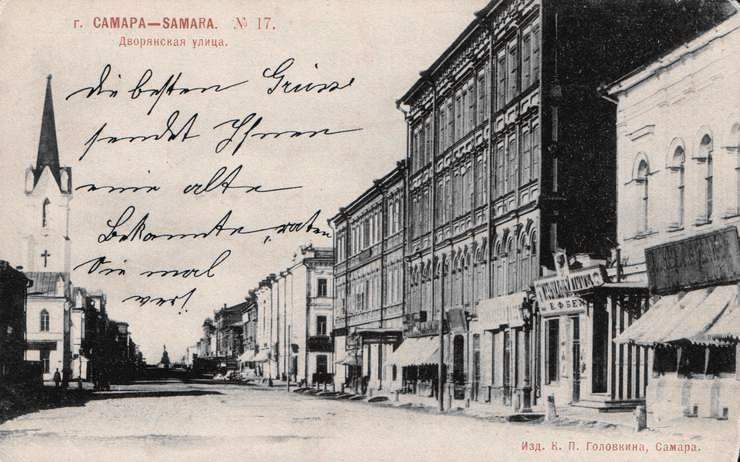 г. САМАРА—SAMARA. № 17.
Дворянская улица.
die besten Grüsse
sendet Ihnen
eine alte
Bekannte, raten
Sie mal
wer!
Изд. К. П. Головкина, Самара.